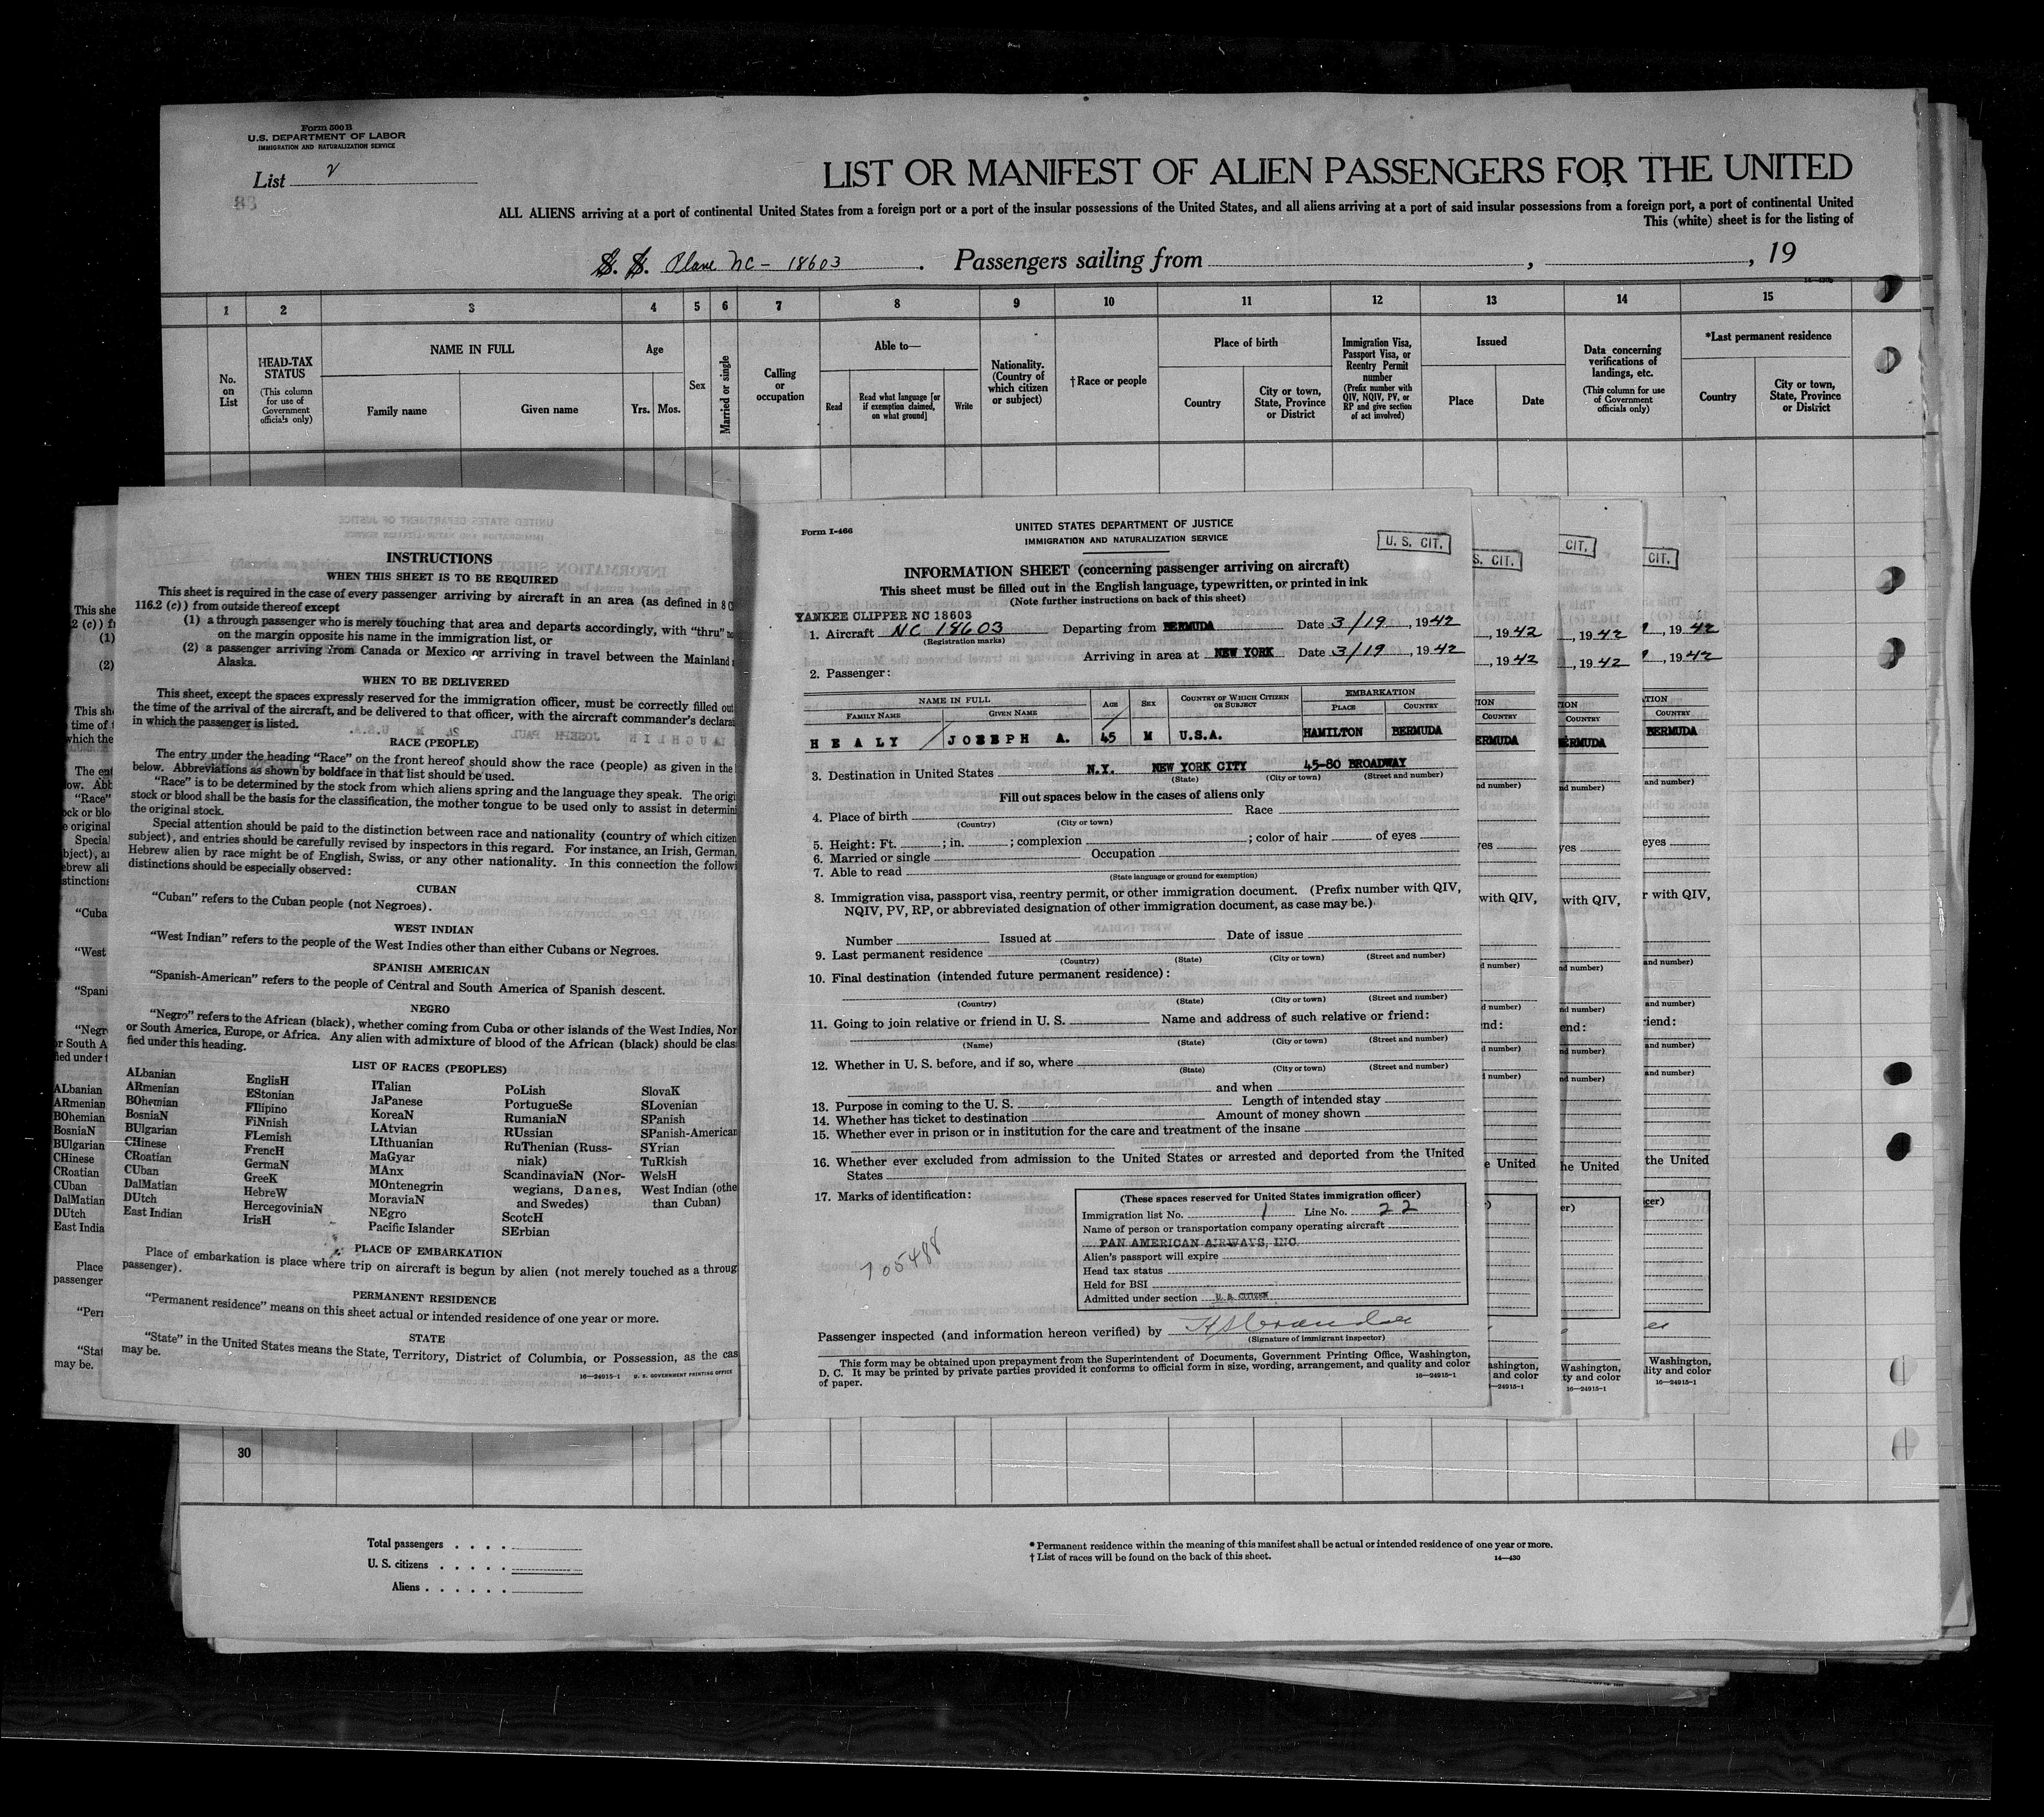 Form 500 B
U.S. DEPARTMENT OF LABOR
IMMIGRATION AND NATURALIZATION SERVICE
List 2
88
LIST OR MANIFEST OF ALIEN PASSENGERS FOR THE UNITED
ALL ALIENS arriving at a port of continental United States from a foreign port or a port of the insular possessions of the United States, and all aliens arriving at a port of said insular possessions from a foreign port, a port of continental United
This (white) sheet is for the listing of
S. S. Plane NC - 18603 . Passengers sailing from , , 19
1 2 3 4 5 6 7 8 9 10 11 12 13 14 15
No. on List
HEAD-TAX STATUS
(This column for use of Government officials only)
NAME IN FULL
Family name
Given name
Age
Yrs. Mos.
Sex
Married or single
Calling or occupation
Able to—
Read
Read what language [or if exemption claimed, on what ground]
Write
Nationality. (Country of which citizen or subject)
†Race or people
Place of birth
Country
City or town, State, Province or District
Immigration Visa, Passport Visa, or Reentry Permit number
(Prefix number with QIV, NQIV, PV, or RP and give section of act involved)
Issued
Place
Date
Data concerning verifications of landings, etc.
(This column for use of Government officials only)
*Last permanent residence
Country
City or town, State, Province or District
INSTRUCTIONS
WHEN THIS SHEET IS TO BE REQUIRED
This sheet is required in the case of every passenger arriving by aircraft in an area (as defined in 8
116.2 (c)) from outside thereof except
(1) a through passenger who is merely touching that area and departs accordingly, with “thru”
on the margin opposite his name in the immigration list, or
(2) a passenger arriving from Canada or Mexico or arriving in travel between the Mainland
Alaska.
WHEN TO BE DELIVERED
This sheet, except the spaces expressly reserved for the immigration officer, must be correctly filled out
the time of the arrival of the aircraft, and be delivered to that officer, with the aircraft commander's
in which the passenger is listed.
RACE (PEOPLE)
The entry under the heading “Race” on the front hereof should show the race (people) as given in the
below. Abbreviations as shown by boldface in that list should be used.
“Race” is to be determined by the stock from which aliens spring and the language they speak. The
stock or blood shall be the basis for the classification, the mother tongue to be used only to assist in
the original stock.
Special attention should be paid to the distinction between race and nationality (country of which citizen
subject), and entries should be carefully revised by inspectors in this regard. For instance, an Irish, German,
Hebrew alien by race might be of English, Swiss, or any other nationality. In this connection the
distinctions should be especially observed:
CUBAN
“Cuban” refers to the Cuban people (not Negroes).
WEST INDIAN
“West Indian” refers to the people of the West Indies other than either Cubans or Negroes.
SPANISH AMERICAN
“Spanish-American” refers to the people of Central and South America of Spanish descent.
NEGRO
“Negro” refers to the African (black), whether coming from Cuba or other islands of the West Indies,
or South America, Europe, or Africa. Any alien with admixture of blood of the African (black) should be
fied under this heading.
LIST OF RACES (PEOPLES)
ALbanian
ARmenian
BOhemian
BosniaN
BUlgarian
CHinese
CRoatian
CUban
DalMatian
DUtch
East Indian
EnglisH
EStonian
FIlipino
FiNnish
FLemish
FrencH
GermaN
GreeK
HebreW
HercegoviniaN
IrisH
ITalian
JaPanese
KoreaN
LAtvian
LIthuanian
MaGyar
MAnx
MOntenegrin
MoraviaN
NEgro
Pacific Islander
PoLish
PortugueSe
RumaniaN
RUssian
RuThenian (Russ-
niak)
ScandinaviaN (Nor-
wegians, Danes,
and Swedes)
ScotcH
SErbian
SlovaK
SLovenian
SPanish
SPanish-American
SYrian
TuRkish
WelsH
West Indian (othe
than Cuban)
PLACE OF EMBARKATION
Place of embarkation is place where trip on aircraft is begun by alien (not merely touched as a throug
passenger).
PERMANENT RESIDENCE
“Permanent residence” means on this sheet actual or intended residence of one year or more.
STATE
“State” in the United States means the State, Territory, District of Columbia, or Possession, as the cas
may be.
16—24915-1 U. S. GOVERNMENT PRINTING OFFICE
Form I-466
UNITED STATES DEPARTMENT OF JUSTICE
IMMIGRATION AND NATURALIZATION SERVICE
U. S. CIT.
INFORMATION SHEET (concerning passenger arriving on aircraft)
This sheet must be filled out in the English language, typewritten, or printed in ink
(Note further instructions on back of this sheet)
YANKEE CLIPPER NC 18603
1. Aircraft NC 18603 Departing from BERMUDA Date 3/19, 1942
(Registration marks)
Arriving in area at NEW YORK Date 3/19, 1942
2. Passenger:
NAME IN FULL
FAMILY NAME GIVEN NAME AGE SEX COUNTRY OF WHICH CITIZEN OR SUBJECT EMBARKATION PLACE COUNTRY
HEALY JOSEPH A. 45 M U.S.A. HAMILTON BERMUDA
3. Destination in United States N.Y. NEW YORK CITY 45-80 BROADWAY
(State) (City or town) (Street and number)
Fill out spaces below in the cases of aliens only
4. Place of birth Race
(Country) (City or town)
5. Height: Ft. ; in. ; complexion ; color of hair of eyes
6. Married or single Occupation
7. Able to read
(State language or ground for exemption)
8. Immigration visa, passport visa, reentry permit, or other immigration document. (Prefix number with QIV,
NQIV, PV, RP, or abbreviated designation of other immigration document, as case may be.)
Number Issued at Date of issue
9. Last permanent residence
(Country) (State) (City or town) (Street and number)
10. Final destination (intended future permanent residence):
(Country) (State) (City or town) (Street and number)
11. Going to join relative or friend in U. S. Name and address of such relative or friend:
(Name) (State) (City or town) (Street and number)
12. Whether in U. S. before, and if so, where
(State) (City or town) (Street and number)
and when
13. Purpose in coming to the U. S. Length of intended stay
14. Whether has ticket to destination Amount of money shown
15. Whether ever in prison or in institution for the care and treatment of the insane
16. Whether ever excluded from admission to the United States or arrested and deported from the United
States
17. Marks of identification:
705488
(These spaces reserved for United States immigration officer)
Immigration list No. 1 Line No. 22
Name of person or transportation company operating aircraft
PAN AMERICAN AIRWAYS, INC.
Alien's passport will expire
Head tax status
Held for BSI
Admitted under section U. S. CITIZEN
Passenger inspected (and information hereon verified) by
(Signature of immigrant inspector)
This form may be obtained upon prepayment from the Superintendent of Documents, Government Printing Office, Washington,
D. C. It may be printed by private parties provided it conforms to official form in size, wording, arrangement, and quality and color
of paper.
16—24915-1
30
Total passengers
U. S. citizens
Aliens
* Permanent residence within the meaning of this manifest shall be actual or intended residence of one year or more.
† List of races will be found on the back of this sheet.
14—430